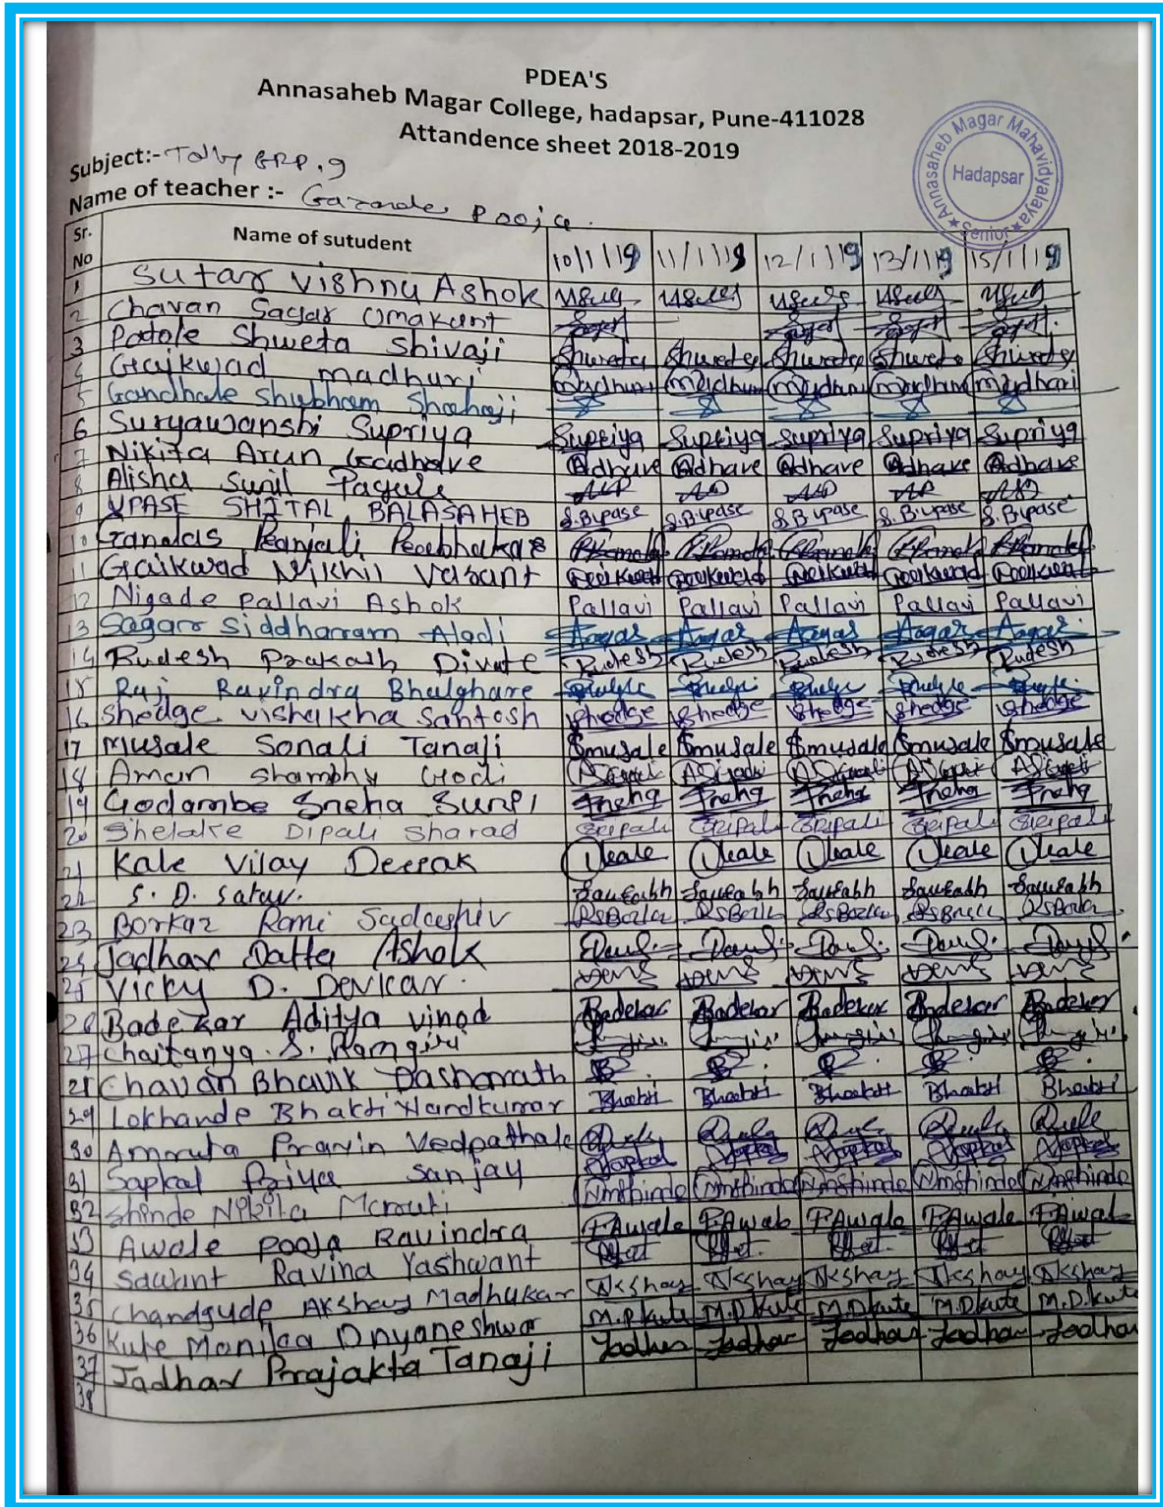 PDEA'S
Annasaheb Magar College, hadapsar, Pune-411028
Attandence sheet 2018-2019
Annasaheb Magar Mahavidyalaya Hadapsar Senior
Subject:- Tally ERP.9
Name of teacher :- Pooja
Sr. No Name of sutudent 10/1/19 11/1/19 12/1/19 13/1/19 15/1/19
1 Sutar Vishnu Ashok
2 Chavan Sagar Umakant
3 Patole Shweta Shivaji Shweta Shweta Shweta Shweta Shweta
4 Gaikwad madhuri Madhuri Madhuri Madhuri Madhuri Madhuri
5 Gandhale Shubham Shahaji
6 Suryawanshi Supriya Supriya Supriya Supriya Supriya Supriya
7 Nikita Arun Gadhave Gadhave Gadhave Gadhave Gadhave Gadhave
8 Alisha Sunil Pagure
9 UPASE SHITAL BALASAHEB S.Bupase S.Bupase S.Bupase S.Bupase S.Bupase
10 Ranjali
11 Gaikwad Nikhil Vasant Gaikwad Gaikwad Gaikwad Gaikwad Gaikwad
12 Nigade Pallavi Ashok Pallavi Pallavi Pallavi Pallavi Pallavi
13 Sagar Siddharam Aladi
14 Rudesh Prakash Divate Rudesh Rudesh Rudesh Rudesh Rudesh
15 Raj Ravindra Bhalghare
16 Shedge Vishakha Santosh Shedge Shedge Shedge Shedge Shedge
17 Musale Sonali Tanaji Smusale Smusale Smusale Smusale Smusale
18 Aman Shambhu
19 Godambe Sneha Sunil Sneha Sneha Sneha Sneha Sneha
20 Shelake Dipali Sharad Dipali Dipali Dipali Dipali Dipali
21 Kale Vijay Deepak Vkale Vkale Vkale Vkale Vkale
22 S. D. Satav. Saurabh Saurabh Saurabh Saurabh Saurabh
23 Borkar Sadashiv
24 Jadhav Datta Ashok
25 Vicky D. Devkar.
26 Badekar Aditya vinod Badekar Badekar Badekar Badekar Badekar
27 Chaitanya. S. Ramgiri
28 Chavan Bhavik Dasharath
29 Lokhande Bhakti Nandkumar Bhakti Bhakti Bhakti Bhakti Bhakti
30 Amruta Pravin Vedpathak
31 Sapkal Priya Sanjay Sapkal Sapkal Sapkal Sapkal Sapkal
32 Shinde Nikita Maruti Nmshinde Nmshinde Nmshinde Nmshinde Nmshinde
33 Awale Pooja Ravindra P.Awale P.Awale P.Awale P.Awale P.Awale
34 Sawant Ravina Yashwant
35 Chandgude Akshay Madhukar Akshay Akshay Akshay Akshay Akshay
36 Kute Dnyaneshwar M.D.kute M.D.kute M.D.kute M.D.kute M.D.kute
37 Jadhav Prajakta Tanaji Jadhav Jadhav Jadhav Jadhav Jadhav
38